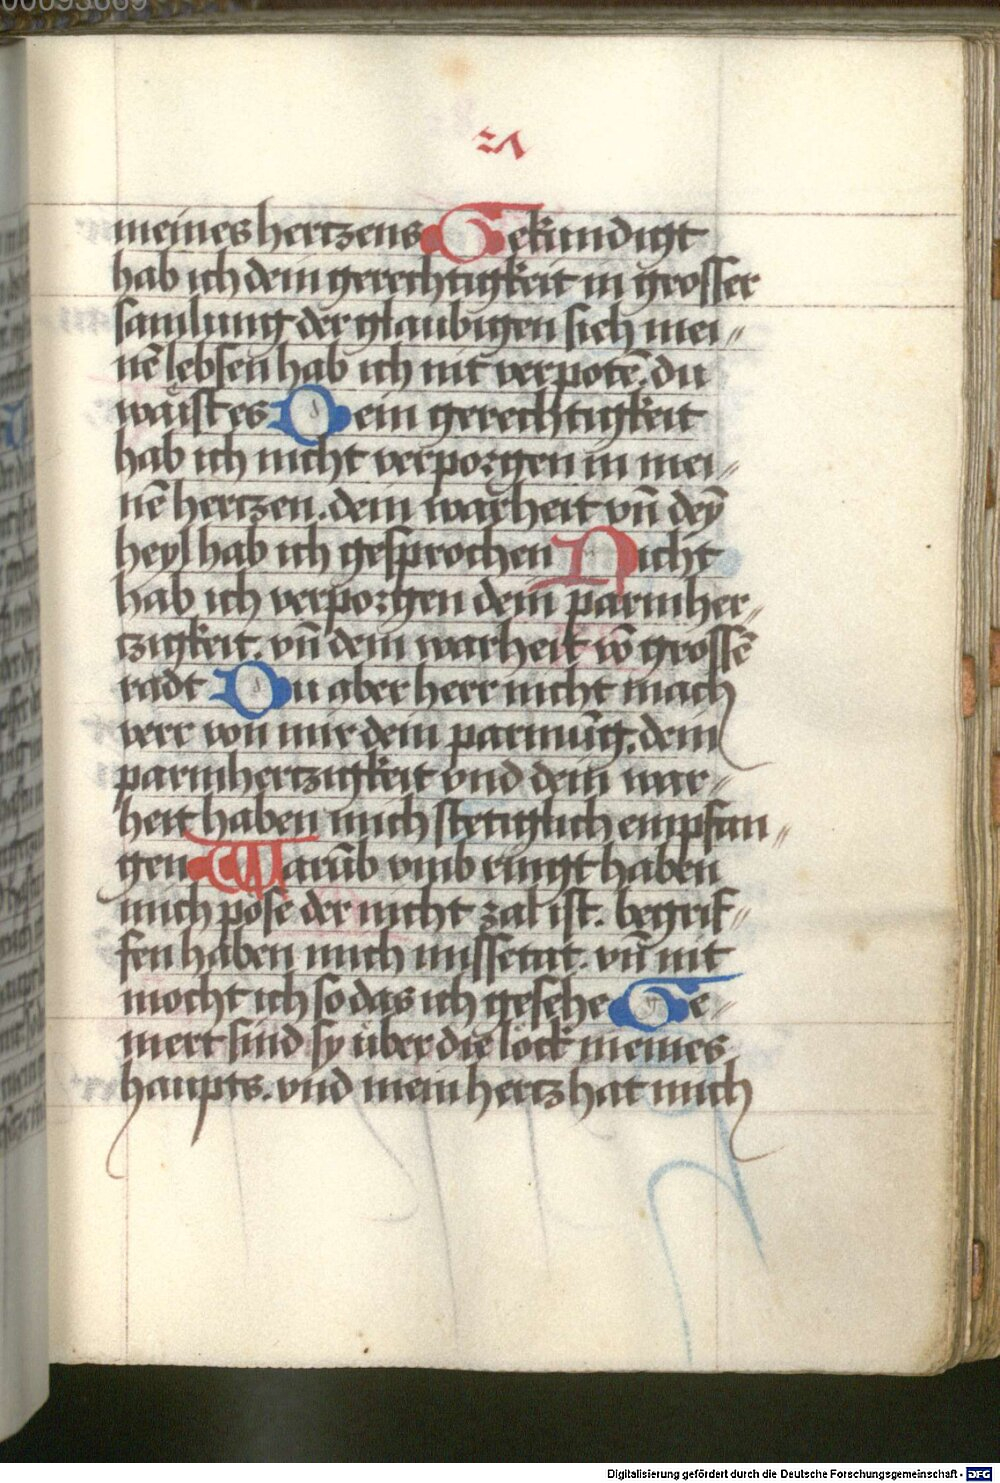 meines hertzens Gekundigt
hab ich dein gerechtigkeit in grosser
samlung der glaubigen sich mei〃
nē lebsen hab ich nit verpotē. du
waist es Dein gerechtigkeit
hab ich nicht verporgen in mei〃
nē hertzen. dein warheit vn̄ deȳ
heyl hab ich gesprochen Nicht
hab ich verporgen dein parmher〃
tzigkeit. vn̄ dein warheit vō grossē
radt Du aber herr nicht mach
verr von mir dein parmūg. dein
parmhertzigkeit vnd dein war〃
heit haben mich stetiglich empfan〃
gen Warūb vmb ringt haben
mich pöse der nicht zal ist. begrif〃
fen haben mich missetat. vn̄ nit
mocht ich so das ich gesehe Ge〃
mert sind sy über die löck meines
haupts. vnd mein hertz hat mich
Digitalisierung gefördert durch die Deutsche Forschungsgemeinschaft - DFG